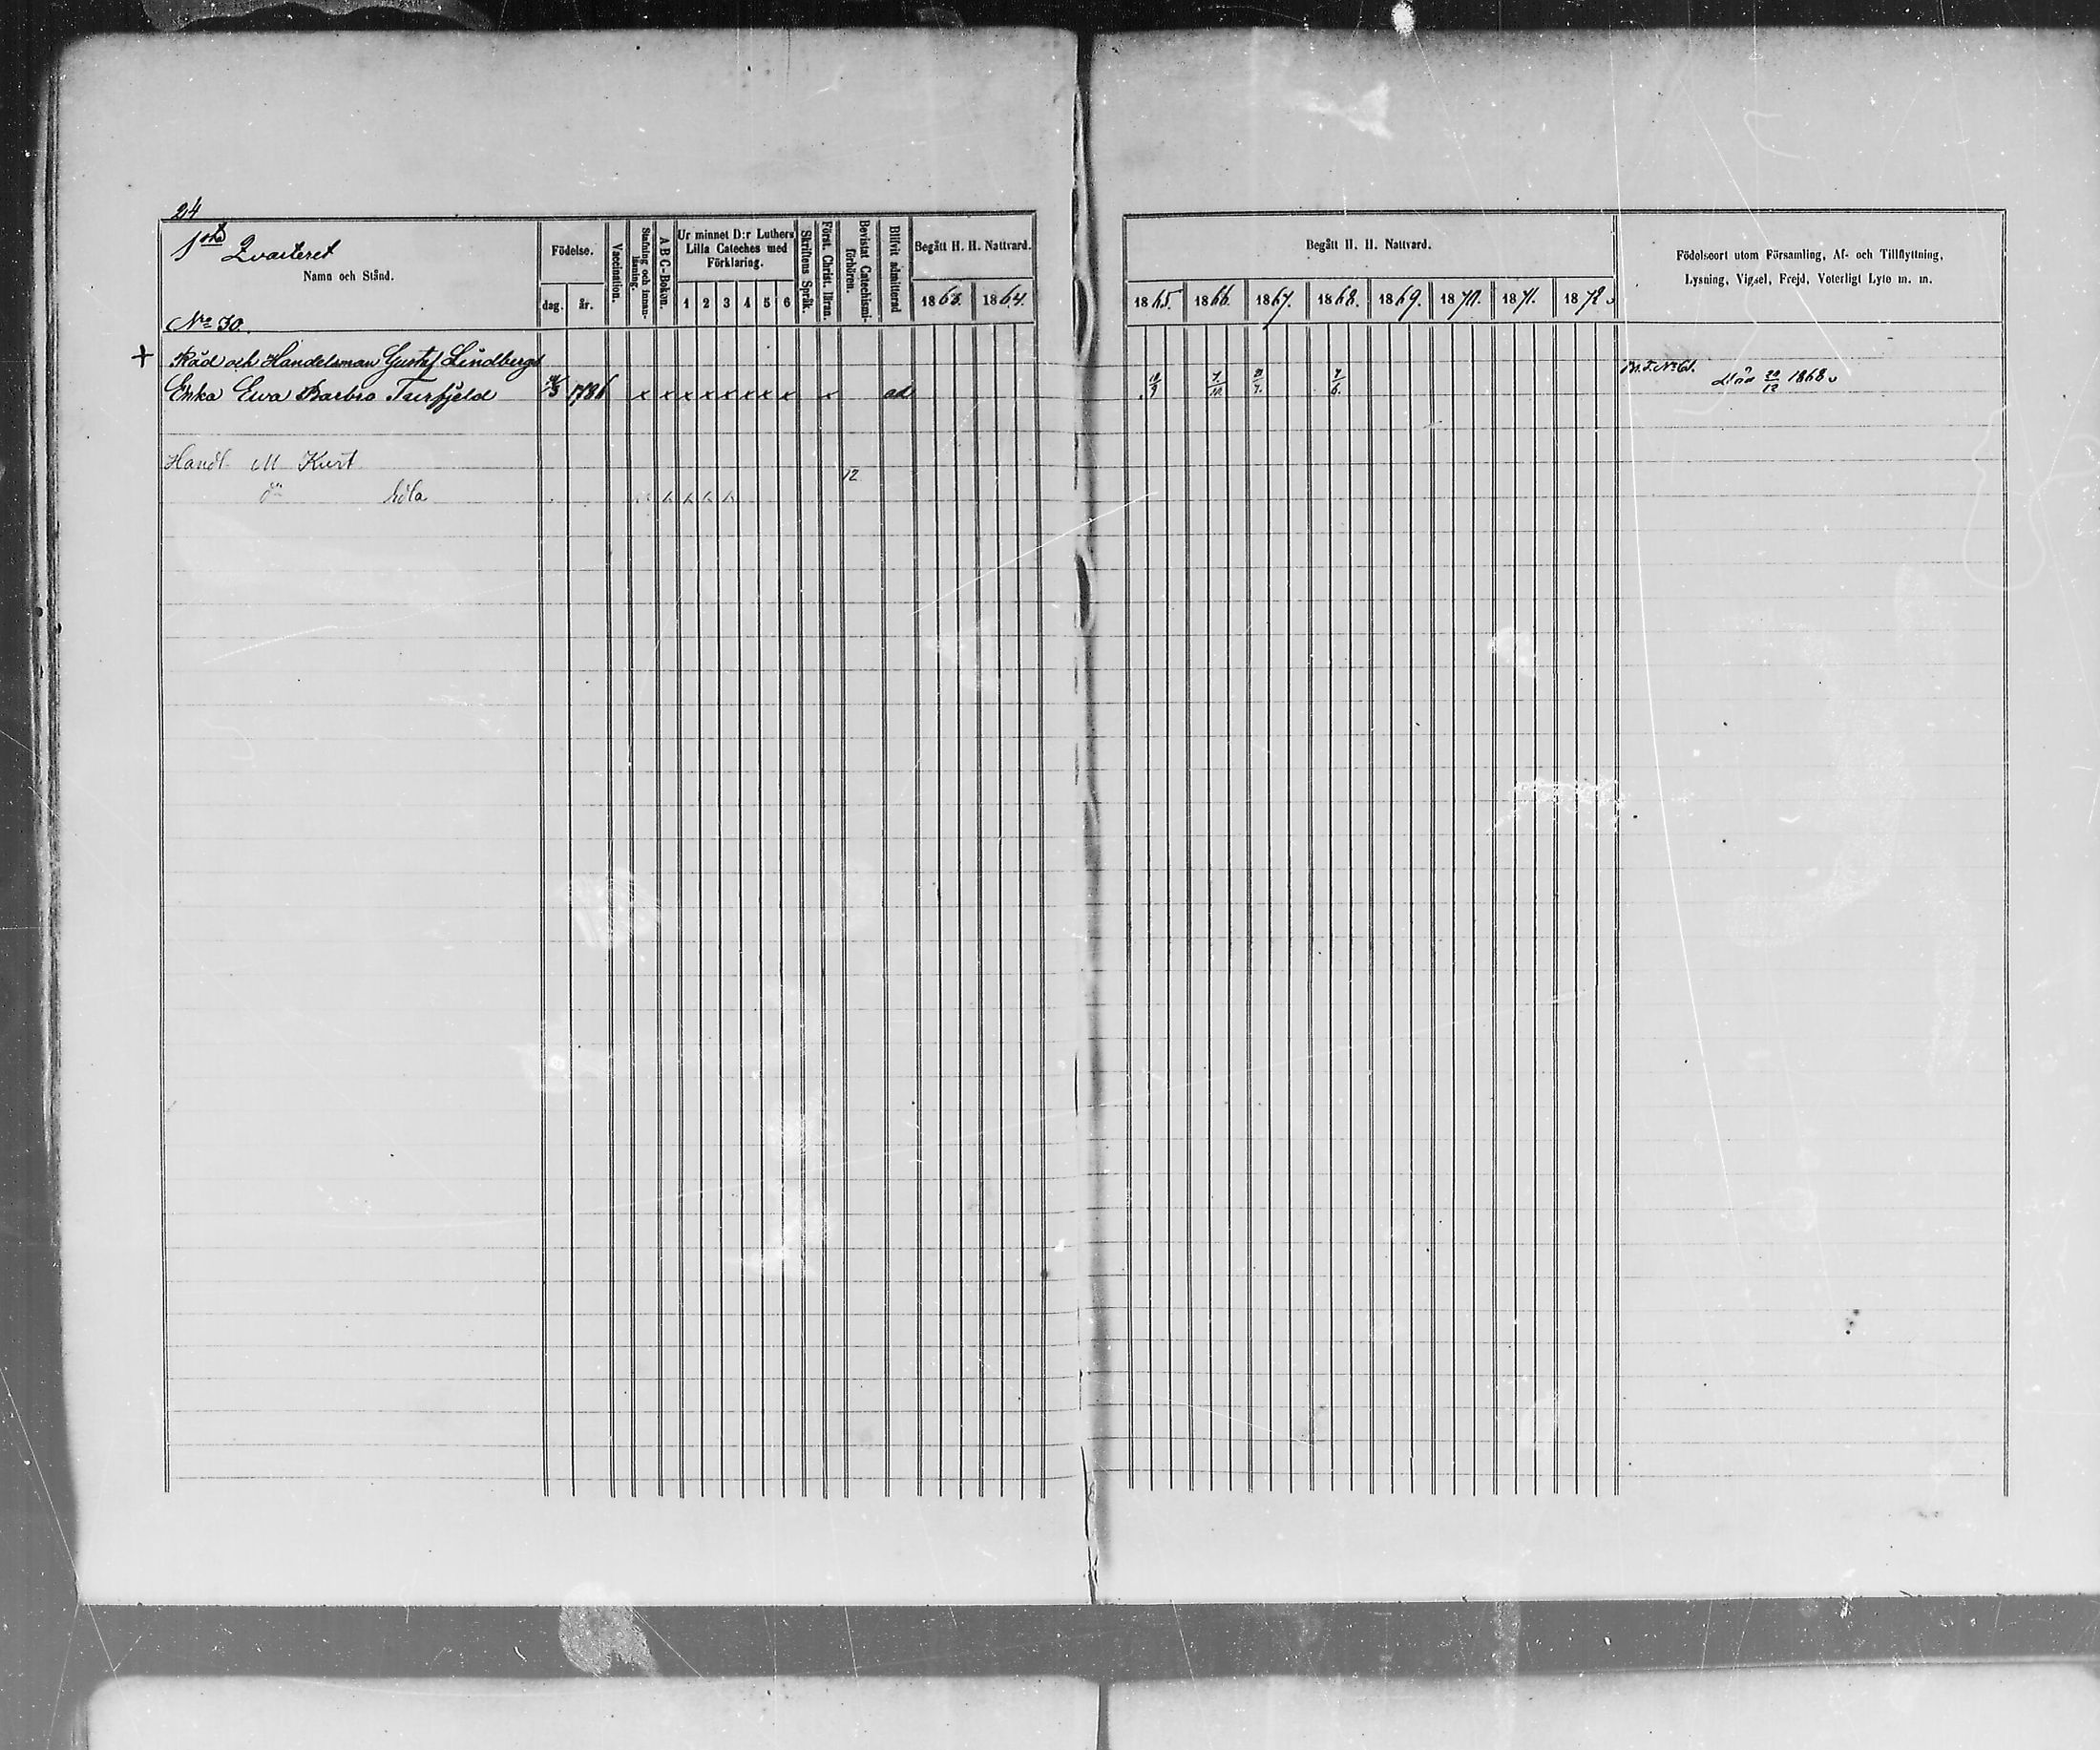 24
1sta Qvarteret
Namn och Stånd.
Födelse.
dag. år.
Vaccination.
Stafning och innanläsning.
A B C-Boken.
Ur minnet D:r Luthers
Lilla Cateches med
Förklaring.
1 2 3 4 5 6
Skriftens Språk.
Först. Christ. läran.
Bevistat Catechismi-
förhören.
Blifvit admitterad
Begått H. H. Nattvard.
1863. 1864.
Begått H. H. Nattvard.
1865. 1866. 1867. 1868. 1869. 1870. 1871. 1872.
Födelseort utom Församling, Af- och Tillflyttning,
Lysning, Vigsel, Frejd, Veterligt Lyte m. m.
Nro 30.
+ Råd och Handelsman Gustaf Lindbergs
Enka Ewa Barbro 1786 x x x x x x x x x ad 7/10 7/6 Död 20/12 1868.
Handl. M Kurt
12